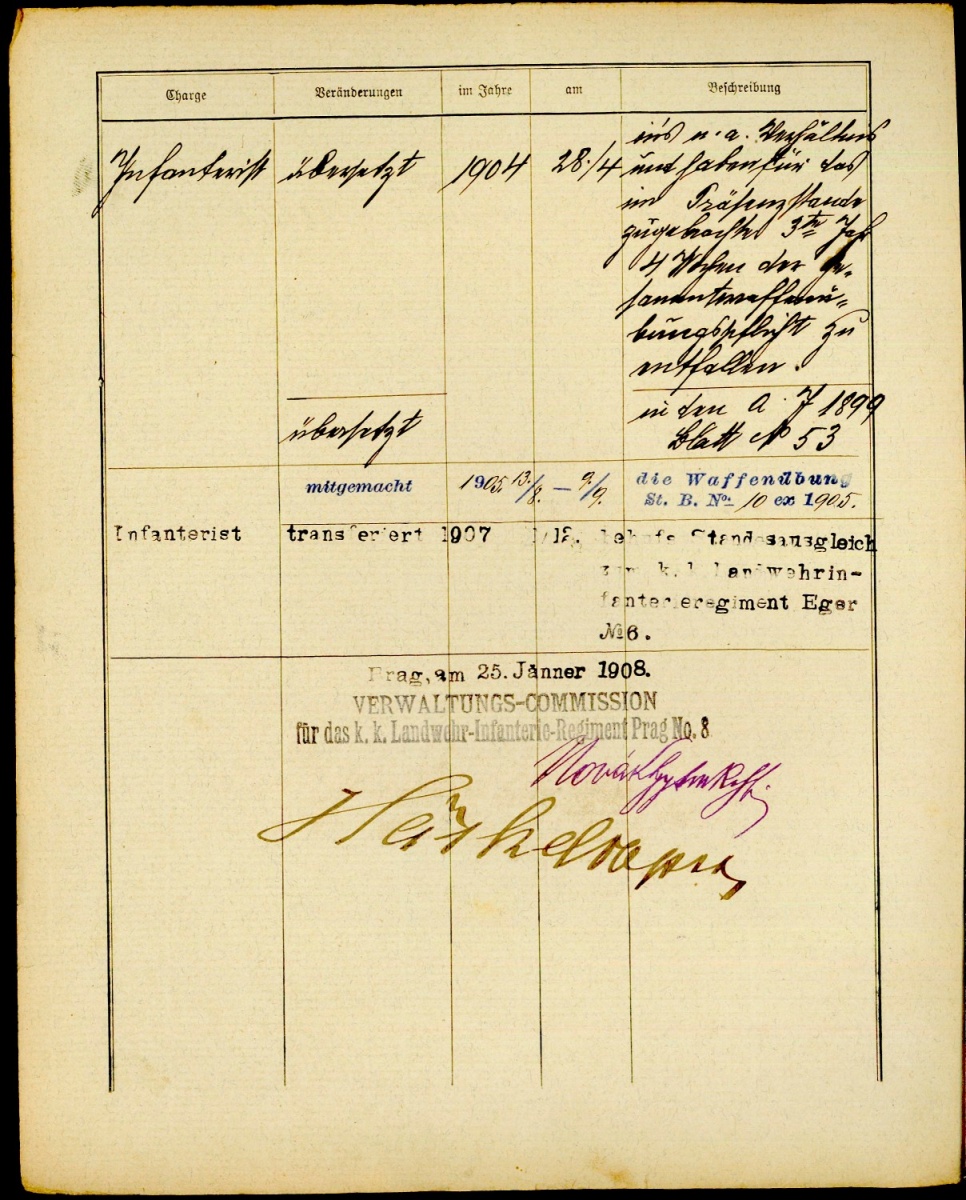 Charge Veränderungen im Jahre am Beschreibung
ins n. a. Verhältnis
Infanterist übersetzt 1904 28./4 und haben für das
im Präsenzstande
zugebrachte 3te Jahr
4 Wochen der Ge-
samtwaffenü-
bungspflicht zu
entfallen.
übersetzt in den A. J 1899
Blatt № 53
mitgemacht 1905. 13./8. — 9./9. die Waffenübung
St. B. No: 10 ex 1905.
Infanterist transferiert 1907 behufs Standesausgleich
zum k.k. Landwehrin-
fanterieregiment Eger
№6.
Prag, am 25. Jänner 1908.
VERWALTUNGS-COMMISSION
für das k. k. Landwehr-Infanterie-Regiment Prag No. 8